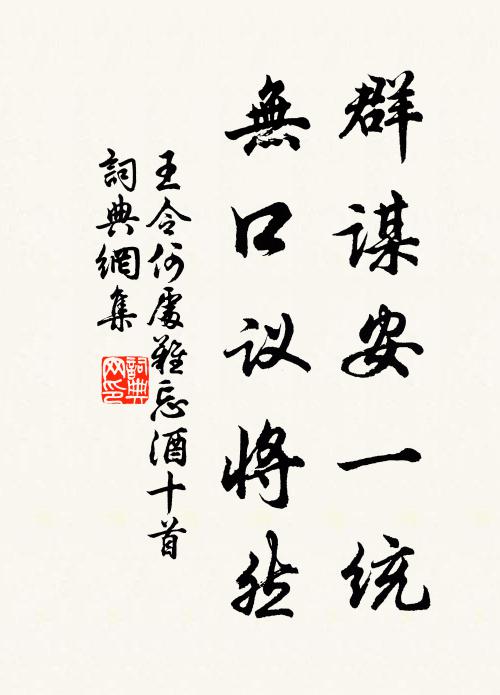 群谋安一统
無口议将然
王令何處難忘酒十首
詞典網集
詞典网印